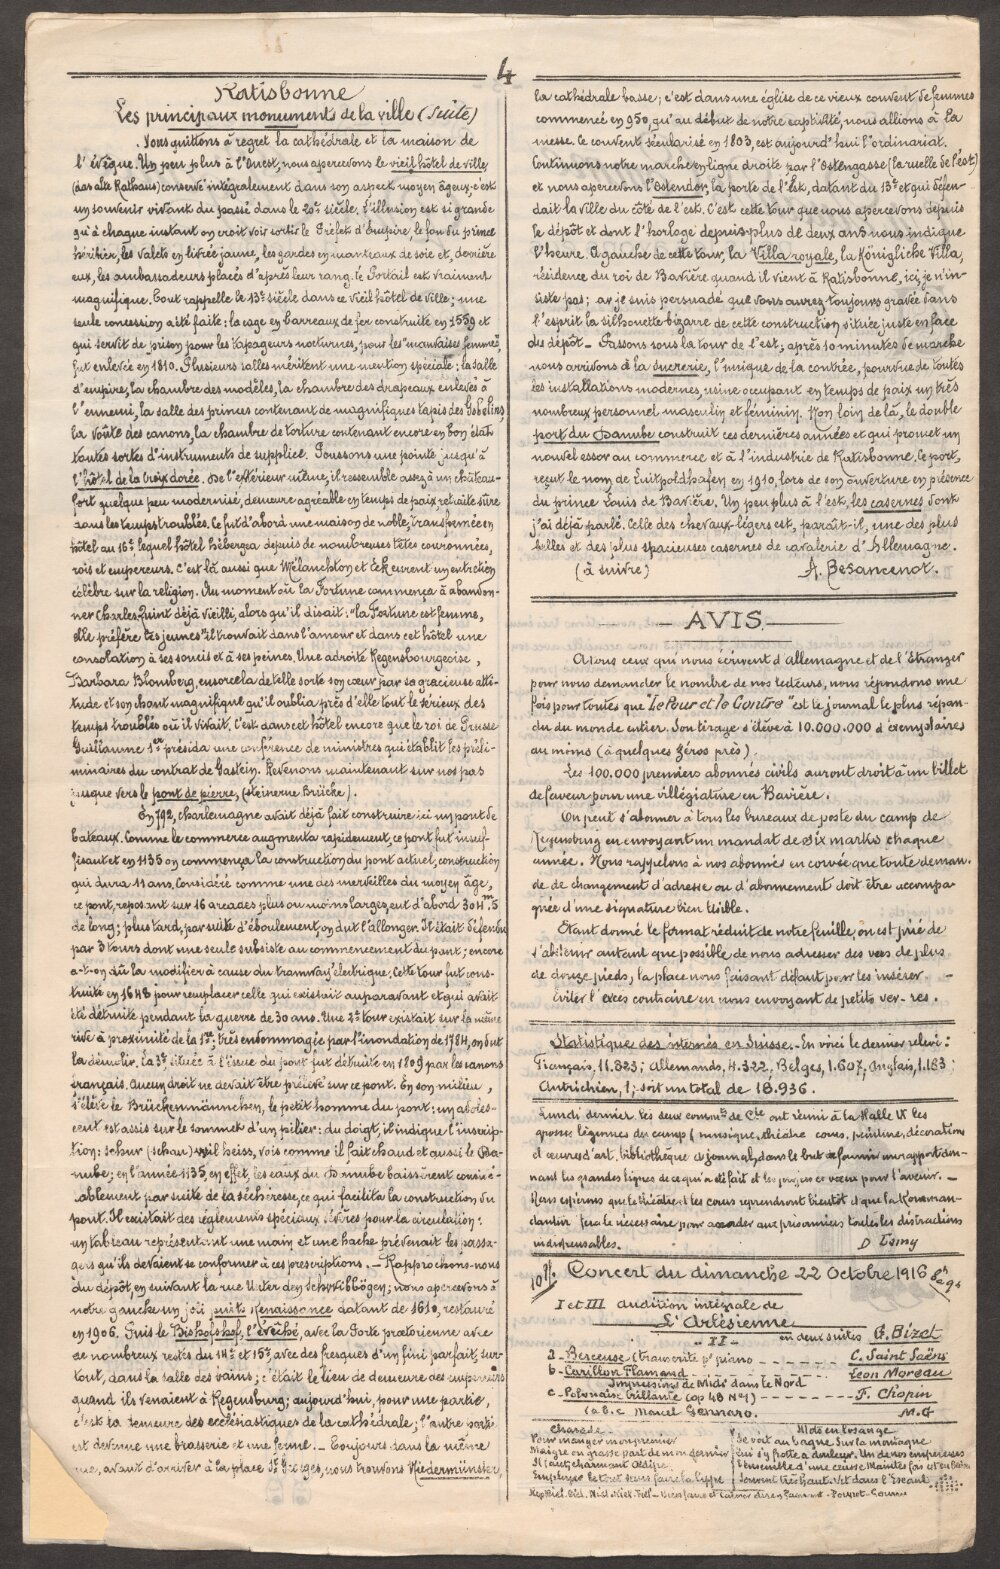 4
Ratisbonne
Les principaux monuments de la ville (suite)
Nous quittons à regret la cathédrale et la maison de
l'évêque. Un peu plus à l'Ouest, nous apercevons le vieil hôtel de ville,
(das alte Rathaus) conservé intégralement dans son aspect moyen âgeux, c'est
un souvenir vivant du passé dans le 20e siècle. L'illusion est si grande
qu'à chaque instant on croit voir sortir le Préfet d'Empire, le fou du prince
héritier, les valets en livrée jaune, les gardes en manteaux de soie et, derrière
eux, les ambassadeurs placés d'après leur rang. Le Portail est vraiment
magnifique. Tout rappelle le 13e siècle dans ce vieil hôtel de ville; une
seule concession a été faite: la cage en barreaux de fer construite en 1559 et
qui servit de prison pour les tapageurs nocturnes, pour les mauvaises femmes,
fut enlevée en 1810. Plusieurs salles méritent une mention spéciale: la salle
d'empire, la chambre des modèles, la chambre des drapeaux enlevés à
l'ennemi, la salle des princes contenant de magnifiques tapis des Gobelins,
la voûte des canons, la chambre de torture contenant encore en bon état
toutes sortes d'instruments de supplice. Poussons une pointe jusqu'à
l'hôtel de la croix dorée. De l'extérieur même, il ressemble assez à un château-
fort quelque peu modernisé, demeure agréable en temps de paix, retraite sûre
dans les temps troublés. Ce fut d'abord une maison de noble, transformée en
hôtel au 16e lequel hôtel hébergea depuis de nombreuses têtes couronnées,
rois et empereurs. C'est là aussi que Mélanchton et Eck eurent un entretien
célèbre sur la religion. Au moment où la Fortune commença à abandon-
ner Charles Quint déjà vieilli, alors qu'il disait: "la Fortune est femme,
elle préfère les jeunes" il trouvait dans l'amour et dans cet hôtel une
consolation à ses soucis et à ses peines. Une adroite Regensbourgeoise,
Barbara Blomberg, ensorcela de telle sorte son cœur par sa gracieuse atti-
tude et son chant magnifique qu'il oublia près d'elle tout le sérieux des
temps troublés où il vivait. C'est dans cet hôtel encore que le roi de Prusse
Guillaume 1er présida une conférence de ministres qui établit les préli-
minaires du contrat de Gastein. Revenons maintenant sur nos pas
jusque vers le pont de pierre, (steinerne Brücke).
En 792, Charlemagne avait déjà fait construire ici un pont de
bateaux. Comme le commerce augmenta rapidement, ce pont fut insuf-
fisant et en 1135 on commença la construction du pont actuel, construction
qui dura 11 ans. Considéré comme une des merveilles du moyen âge,
ce pont, reposant sur 16 arcades plus ou moins larges, eut d'abord 304m.5
de long; plus tard, par suite d'éboulement, on dut l'allonger. Il était défendu
par 3 tours dont une seule subsiste au commencement du pont; encore
a-t-on dû la modifier à cause du tramway électrique. Cette tour fut cons-
truite en 1648 pour remplacer celle qui existait auparavant et qui avait
été détruite pendant la guerre de 30 ans. Une 2e tour existait sur la même
rive à proximité de la 1re, très endommagée par l'inondation de 1784, on dut
la démolir. La 3e située à l'issue du pont fut détruite en 1809 par les canons
français. Aucun droit ne devait être prélevé sur ce pont. En son milieu,
s'élève le Brückenmännchen, le petit homme du pont: un adoles-
cent est assis sur le sommet d'un pilier: du doigt, il indique l'inscrip-
tion: schur (schau) wil heiss, vois comme il fait chaud et aussi le Da-
nube; en l'année 1135, en effet, les eaux du Danube baissèrent considé-
rablement par suite de la sécheresse, ce qui facilita la construction du
pont. Il existait des règlements spéciaux sévères pour la circulation:
un tableau représentant une main et une hache prévenait les passa-
gers qu'ils devaient se conformer à ces prescriptions. — Rapprochons-nous
du dépôt, en suivant la rue Unter den Schwibbögen; nous apercevons à
notre gauche un joli puits Renaissance datant de 1610, restauré
en 1906. Puis le Bishofshof, l'évêché, avec la Porte prætorienne avec
de nombreux restes du 14e et 15e, avec des fresques d'un fini parfait, sur-
tout, dans la salle des bains; c'était le lieu de demeure des empereurs
quand ils venaient à Regensburg; aujourd'hui, pour une partie,
c'est la demeure des ecclésiastiques de la cathédrale; l'autre partie
est devenue une brasserie et une ferme. — Toujours dans la même
rue, avant d'arriver à la place St Georges, nous trouvons Niedermünster,
la cathédrale basse; c'est dans une église de ce vieux couvent de femmes
commencé en 950, qu'au début de notre captivité, nous allions à la
messe. Le couvent sécularisé en 1803, est aujourd'hui l'ordinariat.
Continuons notre marche en ligne droite par l'Ostengasse (la ruelle de l'est)
et nous apercevons l'Ostendor, la porte de l'Est, datant du 13e et qui défen-
dait la ville du côté de l'est. C'est cette tour que nous apercevons depuis
le dépôt et dont l'horloge depuis plus de deux ans nous indique
l'heure. A gauche de cette tour, la Villa royale, la Königliche Villa,
résidence du roi de Bavière quand il vient à Ratisbonne, ici, je n'in-
siste pas; car je suis persuadé que vous aurez toujours gravée dans
l'esprit la silhouette bizarre de cette construction située juste en face
du dépôt — Passons sous la tour de l'est; après 10 minutes de marche
nous arrivons à la sucrerie, l'unique de la contrée, pourvue de toutes
les installations modernes, usine occupant en temps de paix un très
nombreux personnel masculin et féminin. Non loin de là, le double
port du Danube construit ces dernières années et qui promet un
nouvel essor au commerce et à l'industrie de Ratisbonne. Ce port,
reçut le nom de Luitpoldhafen en 1910, lors de son ouverture en présence
du prince Louis de Bavière. Un peu plus à l'est, les casernes dont
j'ai déjà parlé. Celle des chevaux-légers est, paraît-il, une des plus
belles et des plus spacieuses casernes de cavalerie d'Allemagne.
(à suivre) A. Besancenot.
AVIS
A tous ceux qui nous écrivent d'Allemagne et de l'Etranger
pour nous demander le nombre de nos lecteurs, nous répondons une
fois pour toutes que "Le Pour et le Contre" est le journal le plus répan-
du du monde entier. Son tirage s'élève à 10.000.000 d'exemplaires
au moins (à quelques zéros près).
Les 100.000 premiers abonnés civils auront droit à un billet
de faveur pour une villégiature en Bavière.
On peut s'abonner à tous les bureaux de poste du camp de
Regensburg en envoyant un mandat de six marks chaque
année. Nous rappelons à nos abonnés en corvée que toute deman-
de de changement d'adresse ou d'abonnement doit être accompa-
gnée d'une signature bien lisible.
Etant donné le format réduit de notre feuille, on est prié de
s'abstenir autant que possible de nous adresser des vers de plus
de douze pieds, la place nous faisant défaut pour les insérer. —
Eviter l'excès contraire en nous envoyant de petits ver-res.
Statistique des internés en Suisse. — En voici le dernier relevé:
Français, 11.823; Allemands, 4.322, Belges, 1.607, Anglais, 1.183;
Autrichien, 1; soit un total de 18.936.
Lundi dernier les deux commts de Cie ont réuni à la Halle IX les
grosses légumes du camp (musique, théâtre cours, peinture, décorations
et œuvres d'art, bibliothèque et journal, dans le but de fournir un rapport don-
nant les grandes lignes de ce qui a été fait et les projets et vœux pour l'avenir. —
Nous espérons que le théâtre et les cours reprendront bientôt et que la Komman-
dantur fera le nécessaire pour accorder aux prisonniers toutes les distractions
indispensables. D Tamy
Concert du dimanche 22 Octobre 1916
I et III audition intégrale de
L'Arlésienne
en deux suites G. Bizet
- II -
a - Berceuse (transcrite pr piano C. Saint Saëns
b - Carillon Flamand Léon Moreau
Impressions de Midi dans le Nord
c - Polonaise brillante (op 48 N°1) F. Chopin
(a.b.c Marcel Gennaro. M.G
Charade
Pour manger mon premier
Maigre ou grasse part de mon dernier
Il faut, charmant Œdipe,
Employer le tout sans faire la lippe
Mots en losange
Se voit au bagne. Sur la montagne